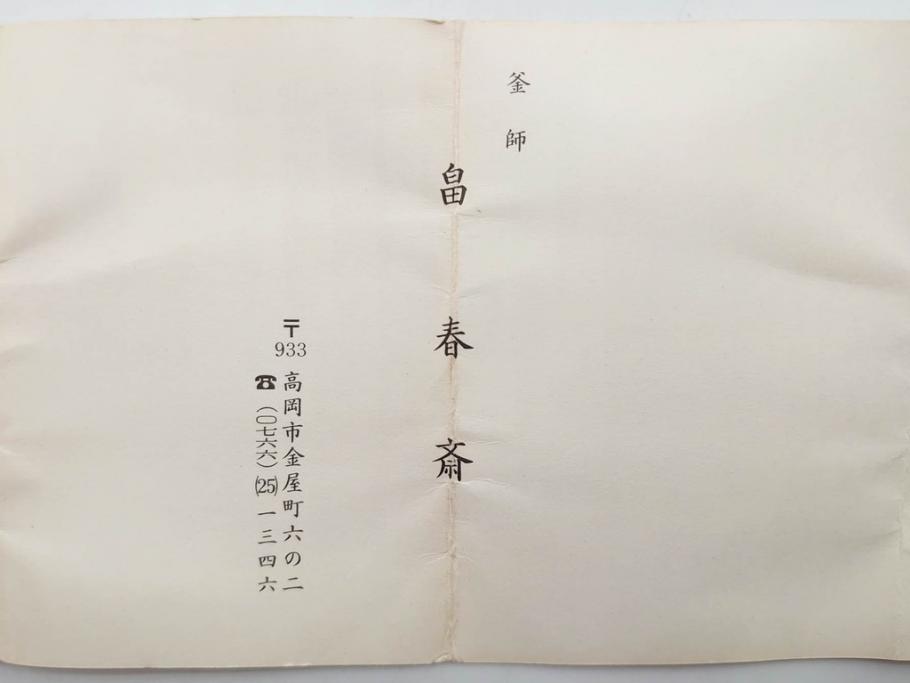 釜師
畠春斎
〒933 高岡市金屋町六の二
☎(〇七六六)(25)一三四六